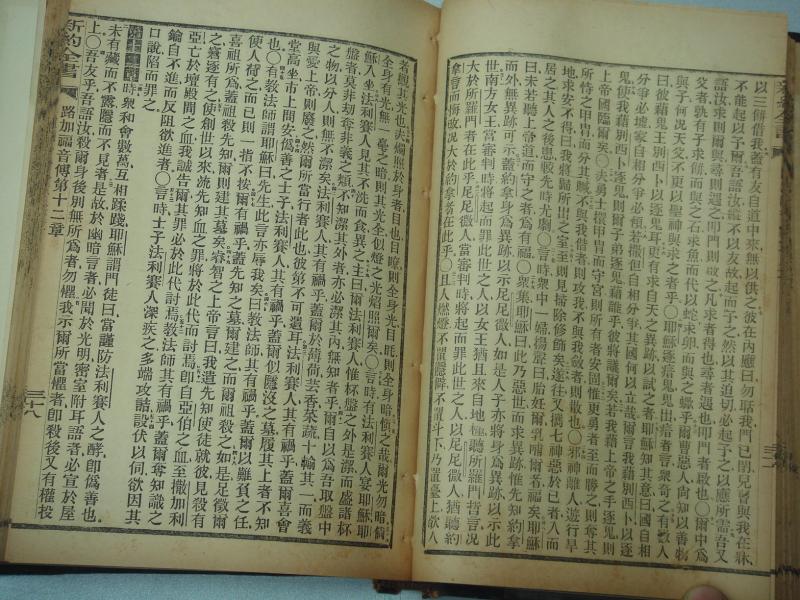 以三餅借我蓋有友自道中來無以供之彼在內應曰勿聒我門已閉兒曹與我在牀
不能起以予爾吾語汝縱不以友故起而予之然以其迫切必起予之以應所需吾又
語汝求則爾與尋則遇之叩門則啟之凡求者得也尋者遇也叩門者啟也〇爾中爲
父者孰有子求餅而與之石求魚而代以蛇求卵而與之蠍乎爾曹惡人尚知以善物
與子何況天父不更以聖神與求之者乎〇耶穌逐瘖鬼鬼出瘖者言衆奇之有數人
曰彼藉鬼王別西卜以逐鬼耳更有求自天之異跡以試之者耶穌知其意曰國自相
分爭必墟家自相分爭必頹若撒但自相分爭其國何以立哉爾言我藉別西卜以逐
鬼使我藉別西卜逐鬼則爾子弟逐鬼藉誰乎彼將議爾矣若我藉上帝之手逐鬼則
上帝國臨爾矣〇夫勇士擐甲冑而守宮則所有者安固惟更勇者至而勝之則奪其
所恃之甲冑而分其贓不與我偕者則攻我不與我斂者則散也〇邪神離人遊行旱
地求安不得曰我將歸所出之室至則見掃除修飾矣遂往又攜七神惡於己者入而
居之其人之後患較先時尤劇〇言時衆中一婦揚聲曰胎妊爾乳哺爾者福矣耶穌
曰未若聽上帝道而守之者爲有福〇衆集耶穌曰此乃惡世而求異跡惟先知約拿
而外無異跡可示之約拿身爲異跡以示尼尼微人如是人子亦必將身爲異跡以示此
世南方女王當審判時將起而罪此世之人以女王猶且來自地極聽所羅門哲言況
大於所羅門者在此乎尼尼微人當審判時將起而罪此世之人以尼尼微人猶聽約
拿言而悔改況大於約拿者在此乎〇且人燃燈不置隱所不置斗下乃置臺上欲人
著恩其光也夫燭照於身者目也目瞭則全身光目眊則全身暗愼之哉爾光勿暗倘
全身有光無一毫之暗則其光全似燈之光焰照爾矣〇言時有法利賽人宴耶穌耶
穌入坐法利賽人見其不洗而食異之主曰爾法利賽人惟杯盤之外是潔而盛諸杯
盤者莫非劫奪非義之類不知潔其外者亦必潔其內無知者乎爾自以爲吾取盤中
之物以分人則無不潔矣法利賽人其有禍乎蓋爾於薄荷芸香菜蔬十輸其一而義
與愛上帝則廢之然爾所當行者此也彼第不可遺耳法利賽人其有禍乎蓋爾喜會
堂高坐市上問安僞善之士子法利賽人其有禍乎蓋爾似隱沒之墓履其上者不知
也〇有教法師謂耶穌曰先生此言亦辱我矣曰教法師其有禍乎蓋爾以難負之任
使人荷之而已則一指不按爾有禍乎蓋先知之墓爾建之而爾祖殺之如是足徵爾
喜祖所爲蓋爾祖殺先知爾則建其墓矣睿智之上帝言曰我遣先知使徒就彼見殺有
之窘逐有之使創世以來流先知血之罪將於此代而討焉卽自亞伯之血至撒加利
亞亡於壇殿間之血我誠告爾其罪必於此代討焉教法師其有禍乎蓋爾奪知識之
鑰自不進而反阻欲進者〇言時士子法利賽人深疾之多端攻詰設伏以伺欲因其
口說陷而罪之
時衆和會數萬互相蹂踐耶穌謂門徒曰當謹防法利賽人之酵卽僞善也
未有藏而不露隱而不見者是故於幽暗言者必聞於光明密室附耳語者必宣於屋
上〇吾友乎吾語汝殺身後別無所爲者勿懼我示爾所當懼者卽殺後又有權投
新約全書 路加福音傳第十二章 三十八